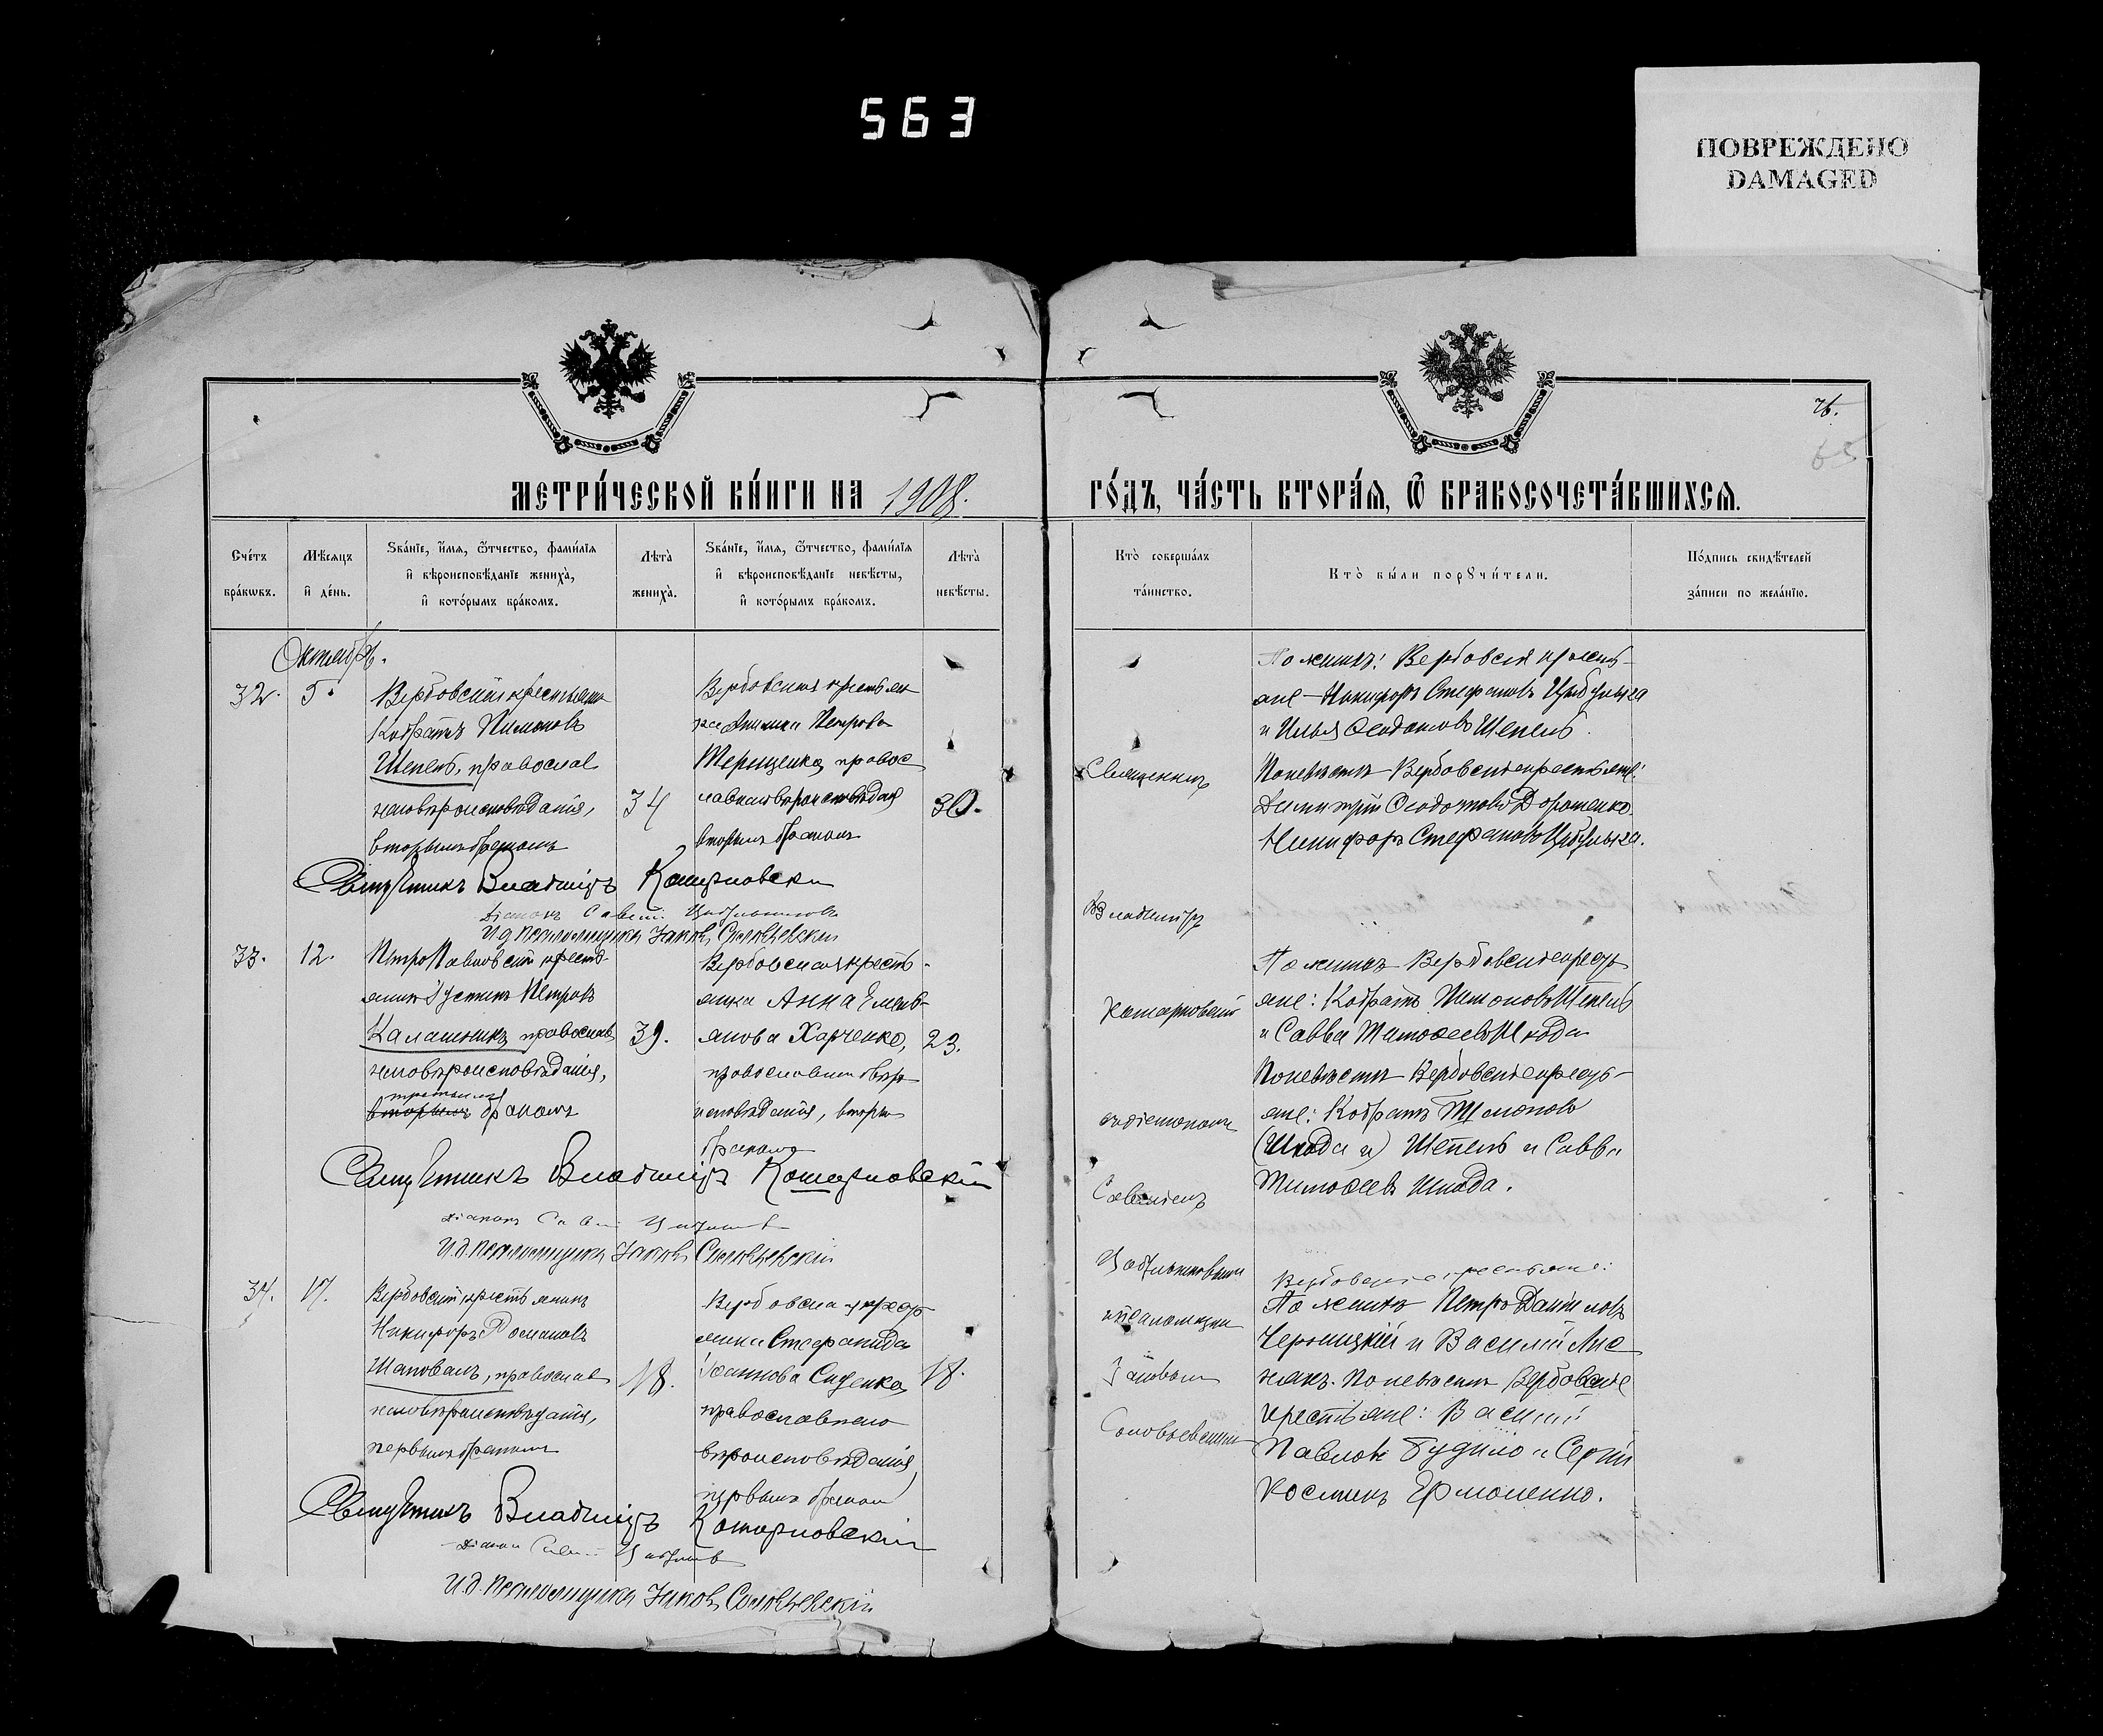 563
ПОВРЕЖДЕНО
DAMAGED
76.
65
МЕТРИ́ЧЕСКОЙ КНИ́ГИ НА 1908.
ГО́ДЪ, ЧА́СТЬ ВТОРА́Я, Ѿ БРАКОСОЧЕТА́ВШИХСЯ.
Сче́тъ бра́кѡвъ.
Мѣ́сяцъ и҆ де́нь.
Ѕва́нїе, и҆́мя, ѻ҆́тчество, фами́лїя
и҆ вѣроисповѣ́данїе жениха̀,
и҆ кото́рымъ бра́комъ.
Лѣта̀ жениха̀.
Ѕва́нїе, и҆́мя, ѻ҆́тчество, фами́лїя
и҆ вѣроисповѣ́данїе невѣ́сты,
и҆ кото́рымъ бра́комъ.
Лѣта̀ невѣ́сты.
Кто̀ соверша́лъ
та́инство.
Кто̀ бы́ли порꙋчи́тели.
По́дпись свидѣ́телей
за́писи по жела́нїю.
Октябрь.
32. 5.
Вербовскій крестьянин
Кодратъ Пимоновъ
Шепель, православ
наго вѣроисповѣданія,
вторымъ бракомъ
34
Вербовская крестьян
ка Петрова
Терещенко, правос
лавнаго вѣроисповѣданія
вторымъ бракомъ
30.
Священникъ
Владиміръ
По женихѣ: Вербовскіе кресть-
яне - Никифоръ Стефановъ Цыбулька
и Илья Ѳеодотовъ Шепель.
По невѣстѣ Вербовскіе крестьяне:
Димитрій Ѳеодотовъ Дорошенко
Никифоръ Стефановъ Цыбулька.
Священникъ Владиміръ Котарновскій
Діаконъ Савватій
И.д. псаломщика Іаковъ Соловьевскій
33. 12.
Петропавловскій кресть-
янинъ Іустинъ Петровъ
Калашникъ, православ
наго вѣроисповѣданія,
третьимъ
вторымъ бракомъ
39.
Вербовская кресть-
янка Анна Емель-
янова Харченко,
православнаго вѣро
исповѣданія, вторы
бракомъ
23.
Котарновскій
съ діакономъ
По женихѣ Вербовскіе кресть
яне: Кодратъ Пимоновъ Шепель
и Савва Тимоѳеевъ Шкода
По невѣстѣ Вербовскіе кресть-
яне: Кодратъ Пимоновъ
(Шкода и) Шепель и Савва
Тимоѳеевъ Шкода.
Священникъ Владиміръ Котарновскій
Діаконъ
И.д. псаломщика Іаковъ Соловьевскій
34. 17.
Вербовскій крестьянинъ
Никифоръ Романовъ
Шаповалъ, православ
наго вѣроисповѣданія,
первымъ бракомъ
18.
Вербовская крест
янка Стефанида
Іоаннова Сиденко,
православнаго
вѣроисповѣданія,
первымъ бракомъ
18.
и псаломщик
Іаковым
Соловьевским
Вербовскіе крестьяне:
По женихѣ Петръ Даніиловъ
Черницкій и Василій Лис
някъ. По невѣстѣ Вербовскіе
крестьяне: Василій
Павловъ Будило и Сергій
Косминъ Ермоленко.
Священникъ Владиміръ Котарновскій
Діаконъ
И.д. псаломщика Іаковъ Соловьевскій